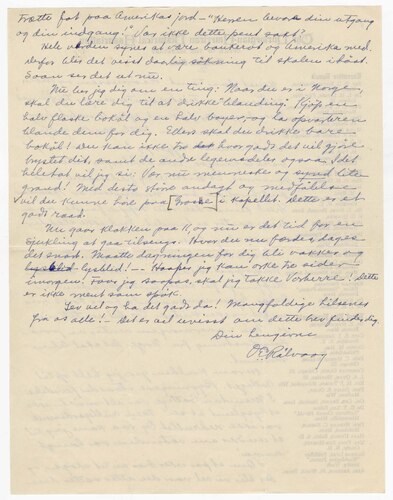 Trætte føt paa Amerikas jord – "Herren bevare din utgang
og din indgang!" Var ikke dette pent sakt?
Hele verden synes at være bankerot og Amerika med.
derfor blir det visst daarlig søkning til skolen i høst.
Svart ser det ut nu.
Nu ber jeg dig om en ting: Naar du er i Norge
skal du lære dig til at drikke "blanding". Kjøp en
halv flaske bokøl og en halv bayer, og la opvarteren
blande dem for dig. Ellers skal du drikke bare
bokøl! Du kan ikke tro hvor godt det vil gjøre
brystet dit, samt de andre legemsdeler ogsaa. I det
hele tat vil jeg si: Vær nu menneske og synd litet
grand! Med desto større andagt og medfølelse
vil du kunne høre paa i kapellet. Dette er et
godt raad.
Nu gaar klokken paa 11, og nu er det tid for en
sjukling at gaa tilsengs. Hvor du nu færdes, dages
det snart. Maatte dagningen for dig bli vakker og
lysblid! — Haaper jeg kan orke tre sider
imorgen. Faar jeg saapas, skal jeg takke Vorherre! Dette
er ikke ment som spøk.
Lev vel og ha det godt da! Mangfoldige hilsener
fra os alle! – Det er vel uvisst om dette brev finder dig.
Din hengivne
O E Rölvaag